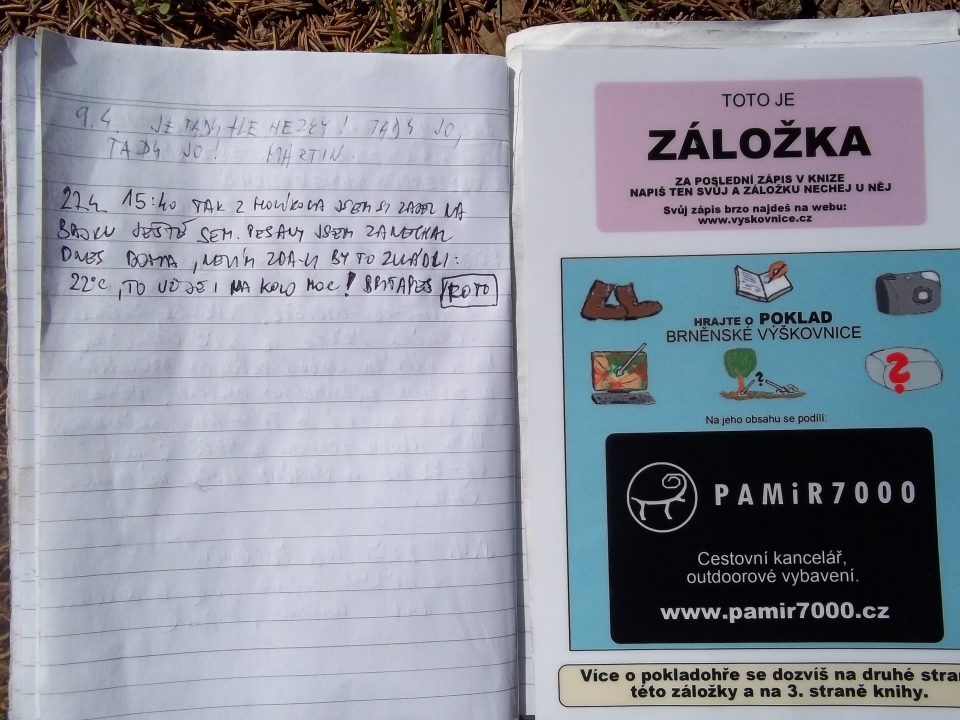 9.4. JE TADYHLE HEZKY! TADY JO,
TADY JO! MARTIN.
22.4. 15:40 TAK Z JSEM SI ZAJEL NA
BAJKU JEŠTĚ SEM. JSEM ZANECHAL
DNES DOMA, NEVÍM ZDA-LI BY TO ZVLÁDLI:
22°C, TO UŽ JE I NA KOLO MOC! ROTO
TOTO JE
ZÁLOŽKA
ZA POSLEDNÍ ZÁPIS V KNIZE
NAPIŠ TEN SVŮJ A ZÁLOŽKU NECHEJ U NĚJ
Svůj zápis brzo najdeš na webu:
www.vyskovnice.cz
HRAJTE O POKLAD
BRNĚNSKÉ VÝŠKOVNICE
?
?
Na jeho obsahu se podílí:
PAMiR7000
Cestovní kancelář,
outdoorové vybavení.
www.pamir7000.cz
Více o pokladohře se dozvíš na druhé stran
této záložky a na 3. straně knihy.